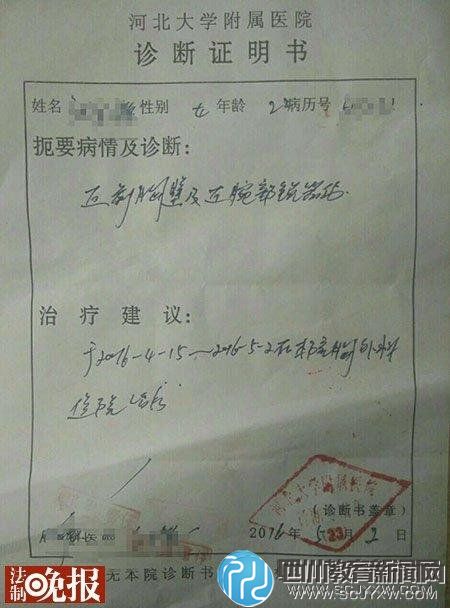 河北大学附属医院
诊断证明书
姓名 性别 女 年龄 2 病历号
扼要病情及诊断：
左前胸壁及左腕部锐器伤
治疗建议：
于2016-4-15～2016-5-2在本院胸外科
住院治疗
（诊断书盖章）
科医 2016年5月2日
无本院诊断书
法制晚报
四川教育新闻网
WWW.SCJYXW.COM